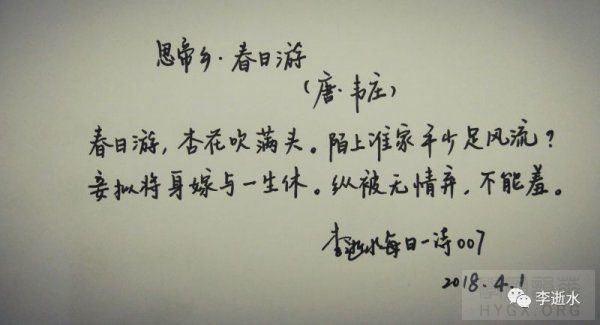 思帝乡·春日游
（唐·韦庄）
春日游，杏花吹满头。陌上谁家年少足风流？
妾拟将身嫁与一生休。纵被无情弃，不能羞。
李逝水每日一诗007
2018.4.1
李逝水
HYGX.ORG